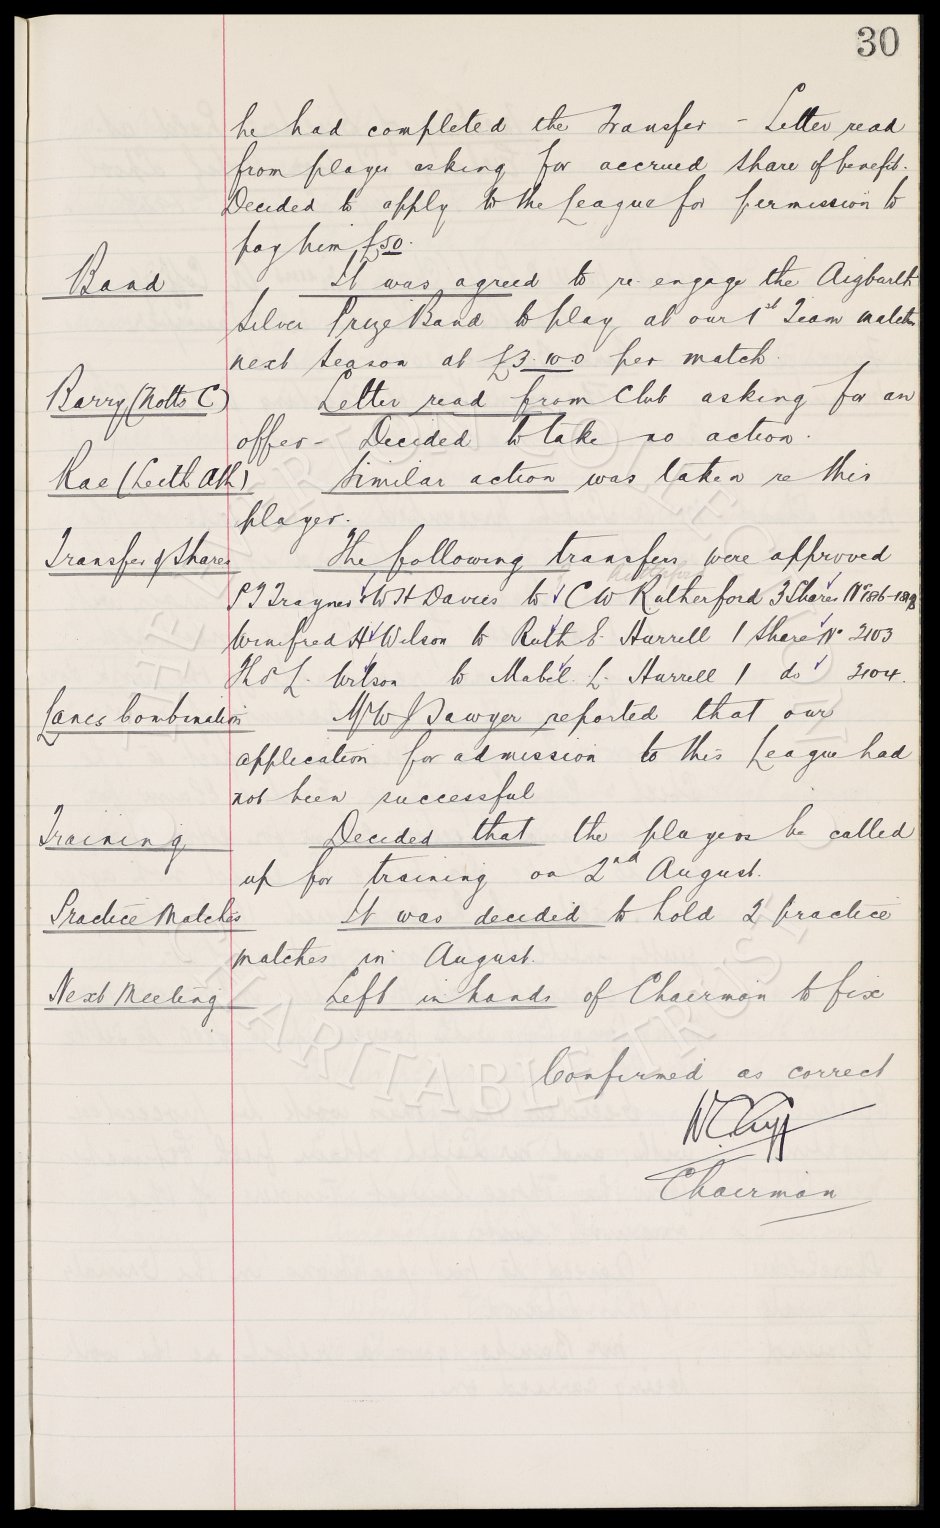 30
he had completed the transfer - Letter read
from player asking for accrued share of benefit.
Decided to apply to the League for permission to
pay him £50.
Band It was agreed to re-engage the Aigburth
Silver Prize Band to play at our 1st Team matches
next season at £3.10.0 per match.
Barry (Notts C) Letter read from Club asking for an
offer - Decided to take no action.
Rae (Leith Ath) Similar action was taken re this
player.
Transfer of Shares The following transfers were approved
P J Traynor & W H Davies to C W Rutherford 3 Shares Nos 186-188
Winifred H Wilson to Ruth E. Hurrell 1 Share No 2103
Thos L. Wilson to Mabel L. Hurrell 1 do 2104.
Lancs Combination Mr W J Sawyer reported that our
application for admission to this League had
not been successful
Training Decided that the players be called
up for training on 2nd August.
Practice Matches It was decided to hold 2 practice
matches in August.
Next Meeting Left in hands of Chairman to fix
Confirmed as correct
Chairman
THE EVERTON COLLECTION
CHARITABLE TRUST